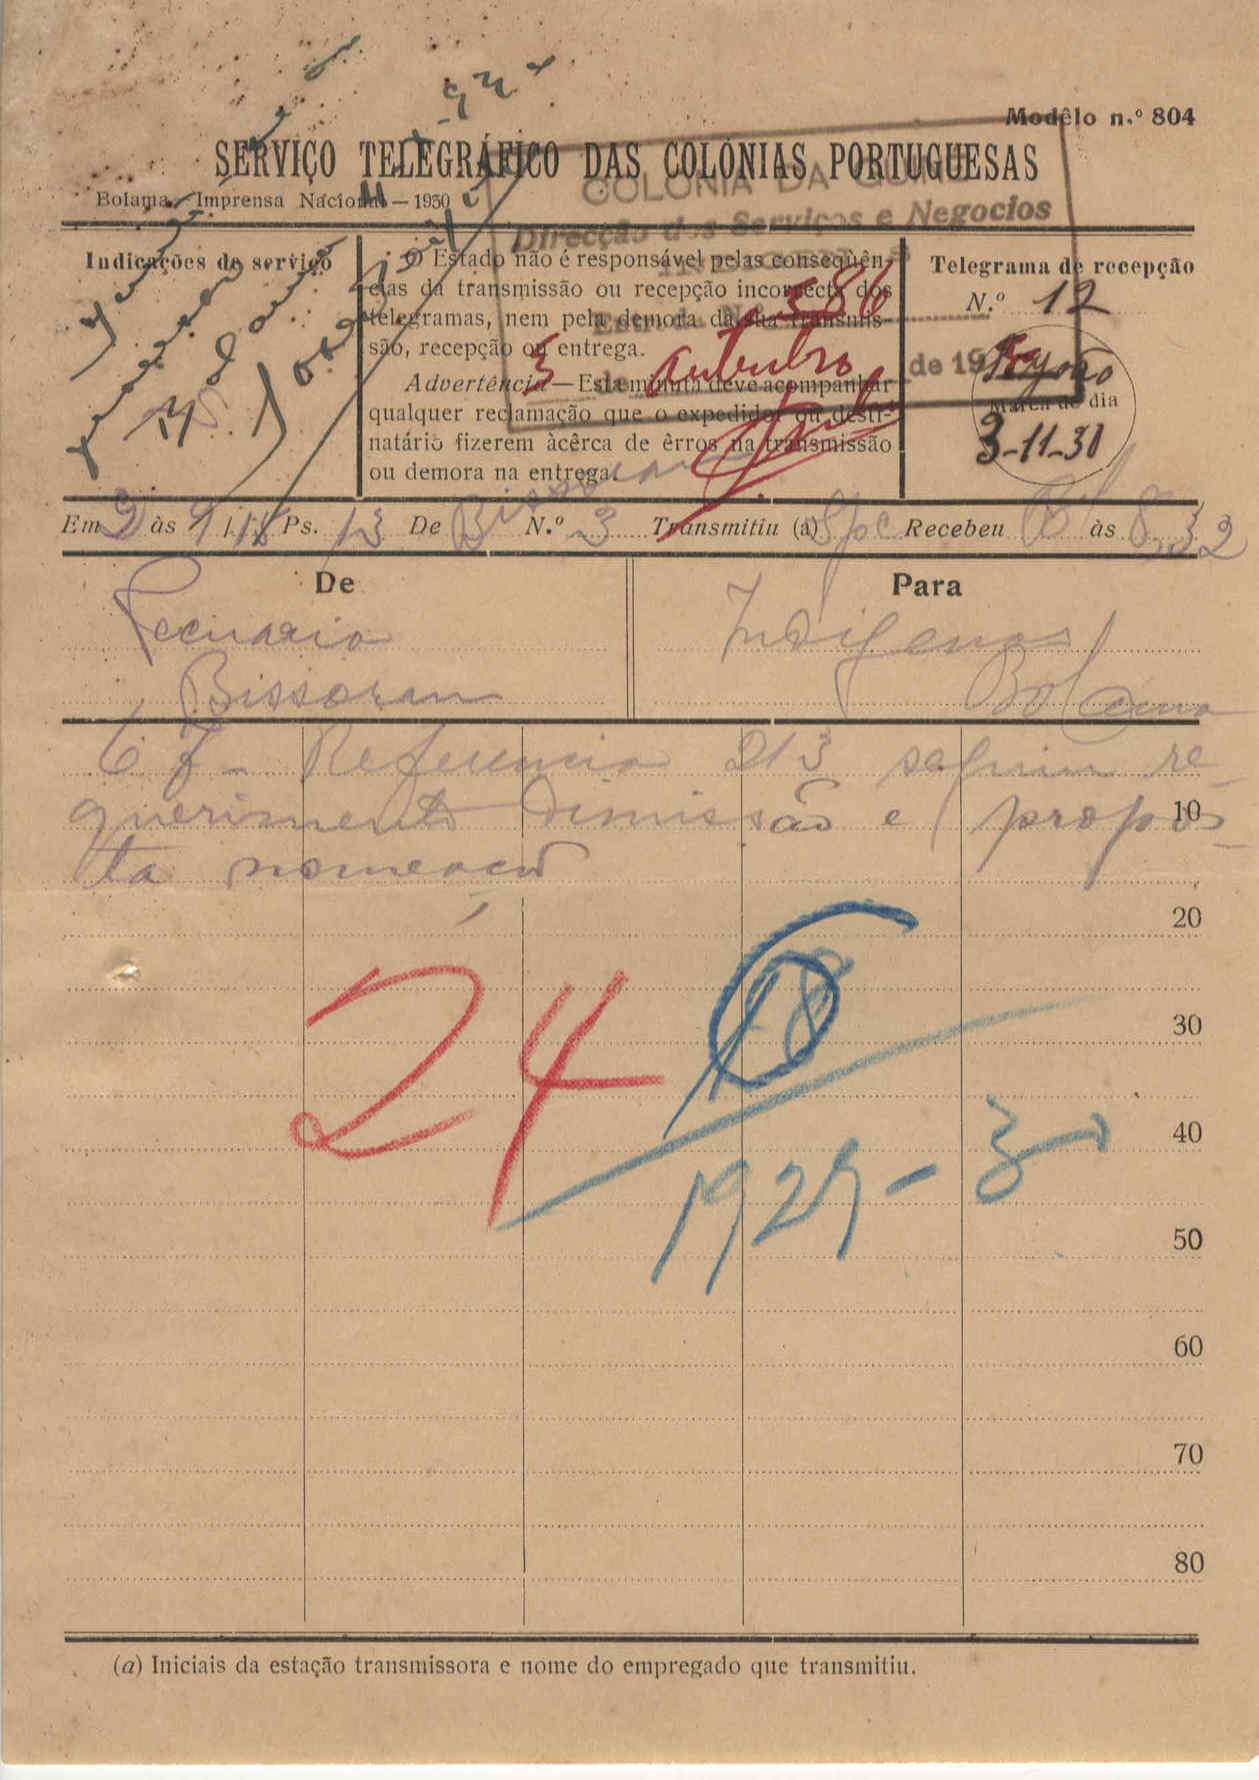 Modêlo n.º 804
SERVIÇO TELEGRÁFICO DAS COLÓNIAS PORTUGUESAS
Bolama. Imprensa Nacional — 1930
COLONIA DA GUINÉ
Direcção dos Serviços e Negocios
Indicações de serviço
O Estado não é responsável pelas conseqüên-
cias da transmissão ou recepção incorrecta dos
telegramas, nem pela demora da sua transmis-
são, recepção ou entrega.
Advertência — Esta minuta deve acompanhar
qualquer reclamação que o expedidor ou desti-
natário fizerem àcêrca de êrros na transmissão
ou demora na entrega.
586
3 outubro de 19
Telegrama de recepção
N.º 12
Marca de dia
3-11-30
Em 2 às Ps. 13 De Bissoram N.º 3 Transmitiu (a) Recebeu às 8,32
De
Pecuaria
Bissoram
Para
Indigenas
Bolama
67 - Referencia 213 seguiu re
querimento dimissão e propos
ta nomeação
10
20
30
40
50
60
70
80
24
18
1929-30
(a) Iniciais da estação transmissora e nome do empregado que transmitiu.